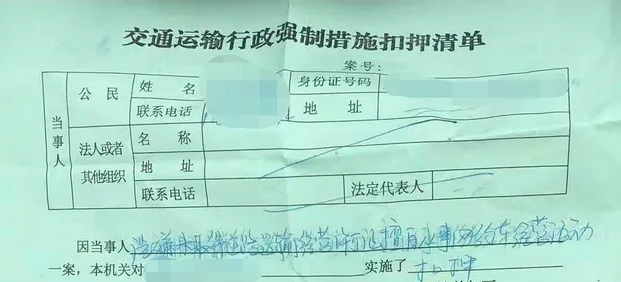 交通运输行政强制措施扣押清单
案号:
当事人
公民 姓名 身份证号码
联系电话 地址
法人或者其他组织 名称
地址
联系电话 法定代表人
因当事人 涉嫌未取得道路运输经营许可证擅自从事网约车经营活动
一案,本机关对 实施了 扣押